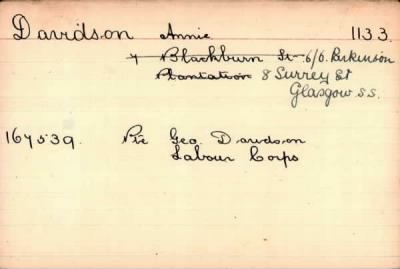 Davidson Annie 1133.
7 Blackburn St 6/o. Parkinson
Plantation 8 Surrey St
Glasgow s.s.
167539. Pte Geo. Davidson
Labour Corps